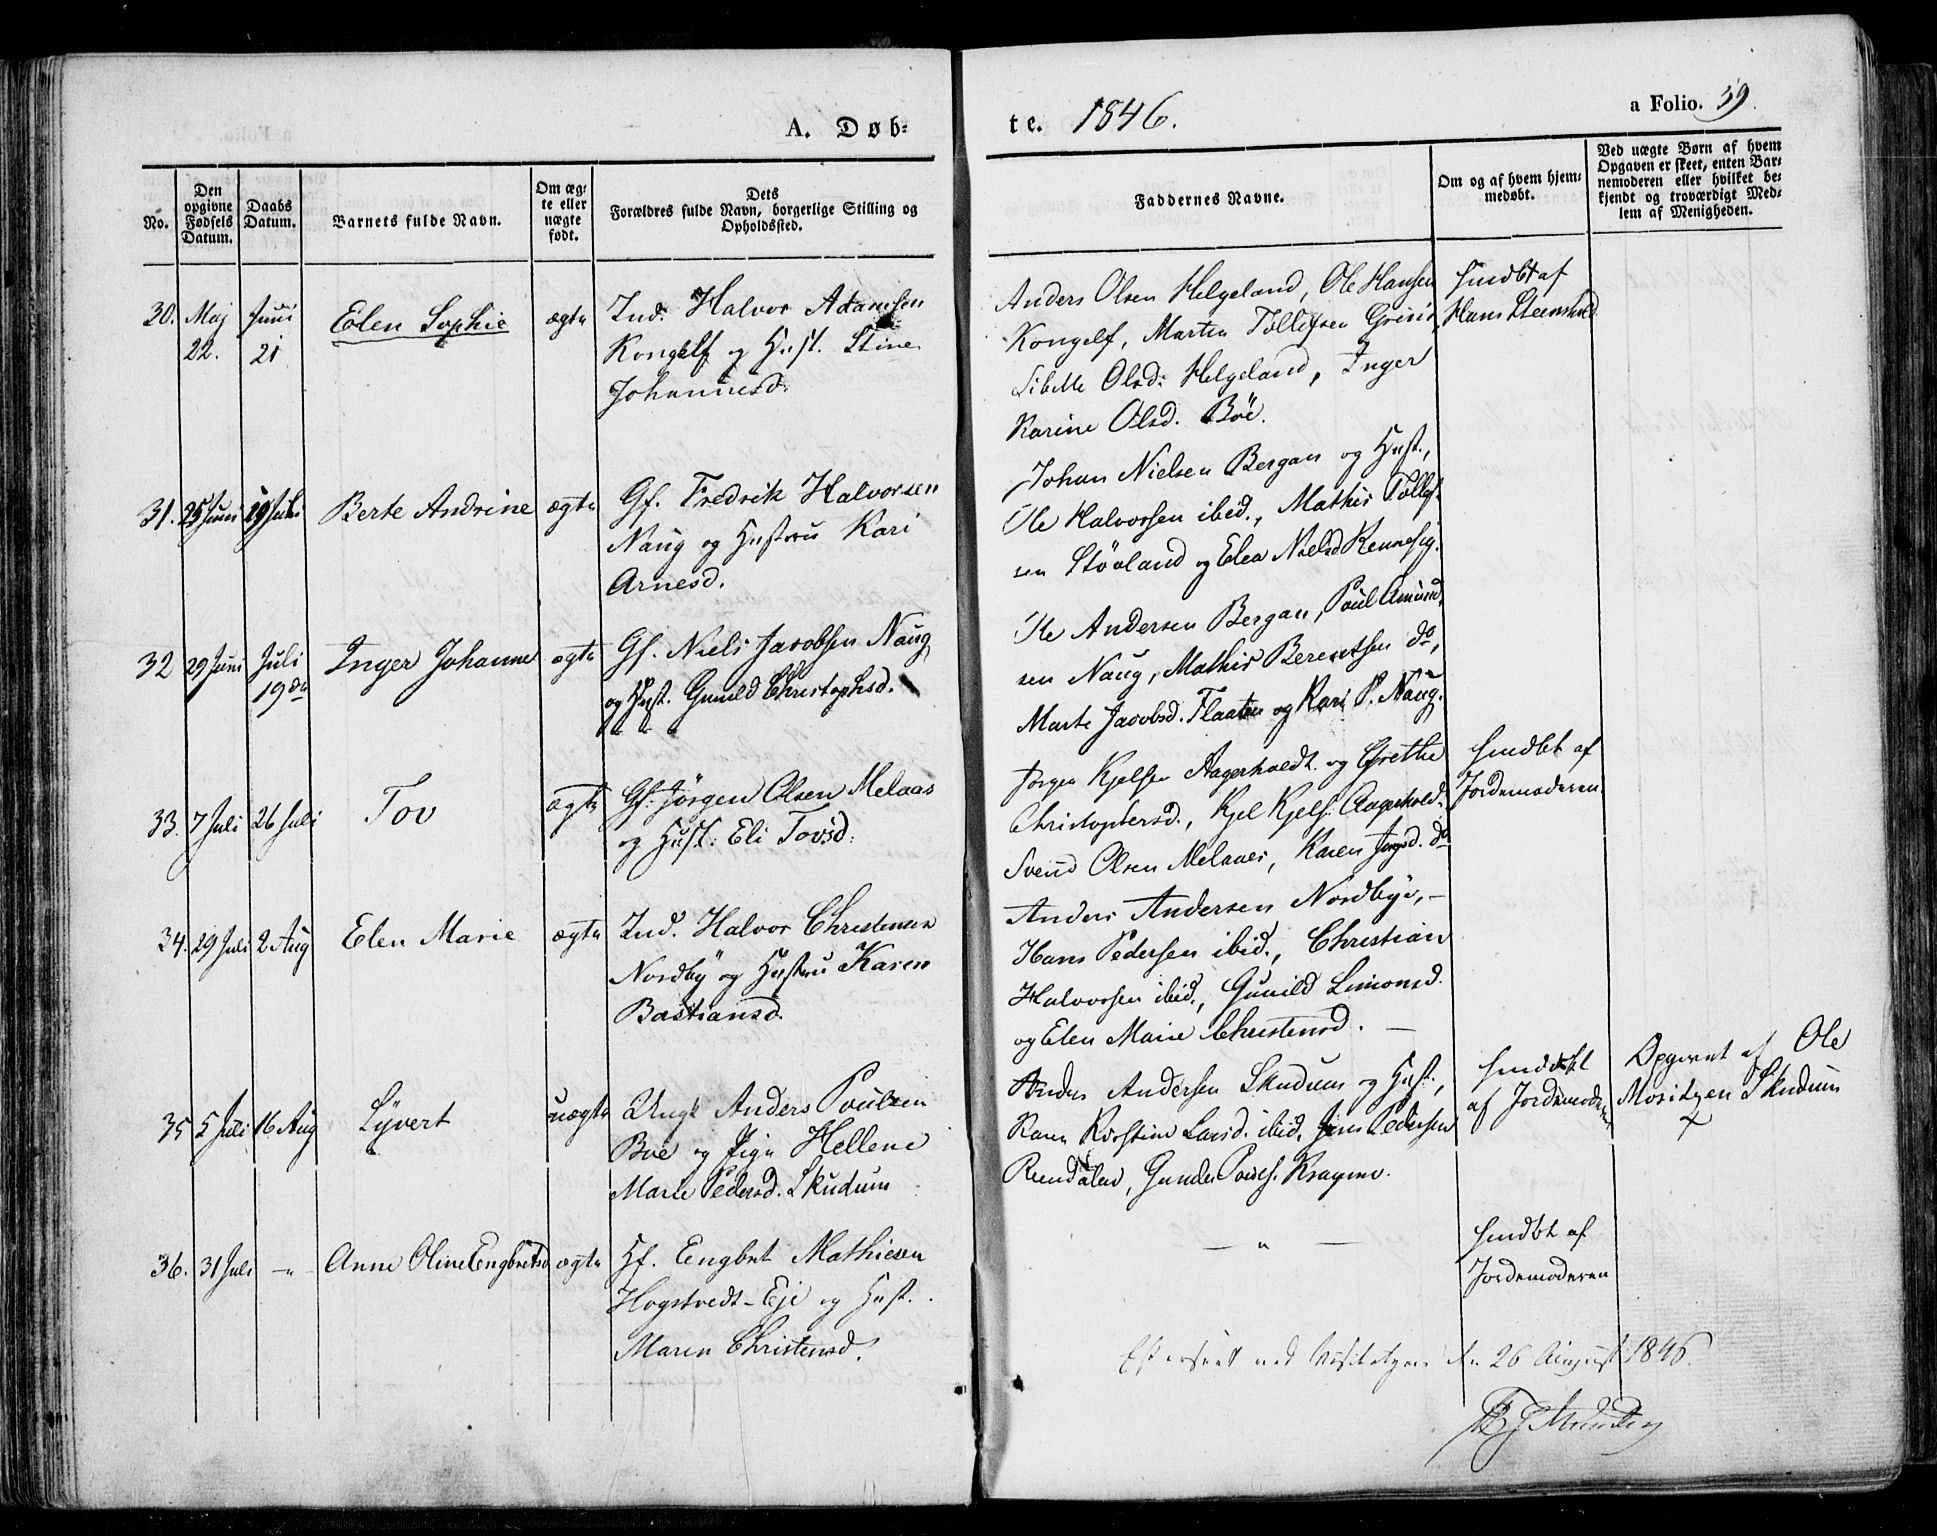 A. Døb-
te. 1846.
a Folio. 39.
No.
Den opgivne Fødsels Datum.
Daabs Datum.
Barnets fulde Navn.
Om ægte eller uægte født.
Dets Forældres fulde Navn, borgerlige Stilling og Opholdssted.
Faddernes Navne.
Om og af hvem hjemmedøbt.
Ved uægte Børn af hvem Opgaven er skeet, enten Barnemoderen eller hvilket bekjendt og troværdigt Medlem af Menigheden.
30. Maj 22. Juni 21 Elen Sophie ægte
Ind. Halvor Adamsen
Kongelf og Hust. Stine
Johannesd.
Anders Olsen Helgeland, Ole Hansen
Kongelf, Martin Tollefsen
Sibille Olsd. Helgeland, Inger
Karine Olsd. Böe.
hmdbt af
Hans
31. 25 Juni 19 Juli Berte Andrine ægte
Gf. Fredrik Halvorsen
Naug og Hustru Kari
Arnesd.
Johan Nielsen Bergan og Hust.,
Ole Halvorsen ibid., Mathis Tollef-
sen Stövland og Elen Nielsd
32 29 Juni Juli 19de Inger Johanne ægte
Gf. Niels Jacobsen Naug
og Hust. Gunild Christophsd.
Ole Andersen Bergan, Poul Amund-
sen Naug, Mathis Berentsen do,
Marte Jacobsd. Flaaten og Kari P. Naug.
33. 7 Juli 26 Juli Tov ægte
Gf. Jörgen Olsen Melaas
og Hust: Eli Tovsd:
Jörgen Kjelsen Aagerholdt og Grethe
Christophersd., Kjel Kjels. Aagerhold.
Svend Olsen Melaaes, Karen Jörgsd. do
hmdbt af
Jordemoderen.
34. 29 Juli 2 Aug Elen Marie ægte
Ind. Halvor Christensen
Nordby og Hustru Karen
Bastiansd.
Anders Andersen Nordbye,-
Hans Pedersen ibid., Christian
Halvorsen ibid., Gunild Simonsd.
og Elen Marie Christensd. -
35 5 Juli 16 Aug Lÿvert uægte
Ungk Anders Poulsen
Boe og Pige Hellene
Marie Pedersd. Skudum
Anders Andersen Skudum og Hust.,
Karen Kirstine Larsd. ibid, Jens Pedersen
Gunder Pouls. Kragerø.
hmddbt
af Jordemoderen
Opgivet af Ole
Moritzen Skudum
36. 31 Juli -„ Anne Oline Engbretsd ægte
Hf. Engbret Mathiesen
Hogstvedt-Eje og Hust.
Maren Christensd.
— „ —
hmdbt af
Jordemoderen
Efterseet ved Visitatzen den 26 August 1846.